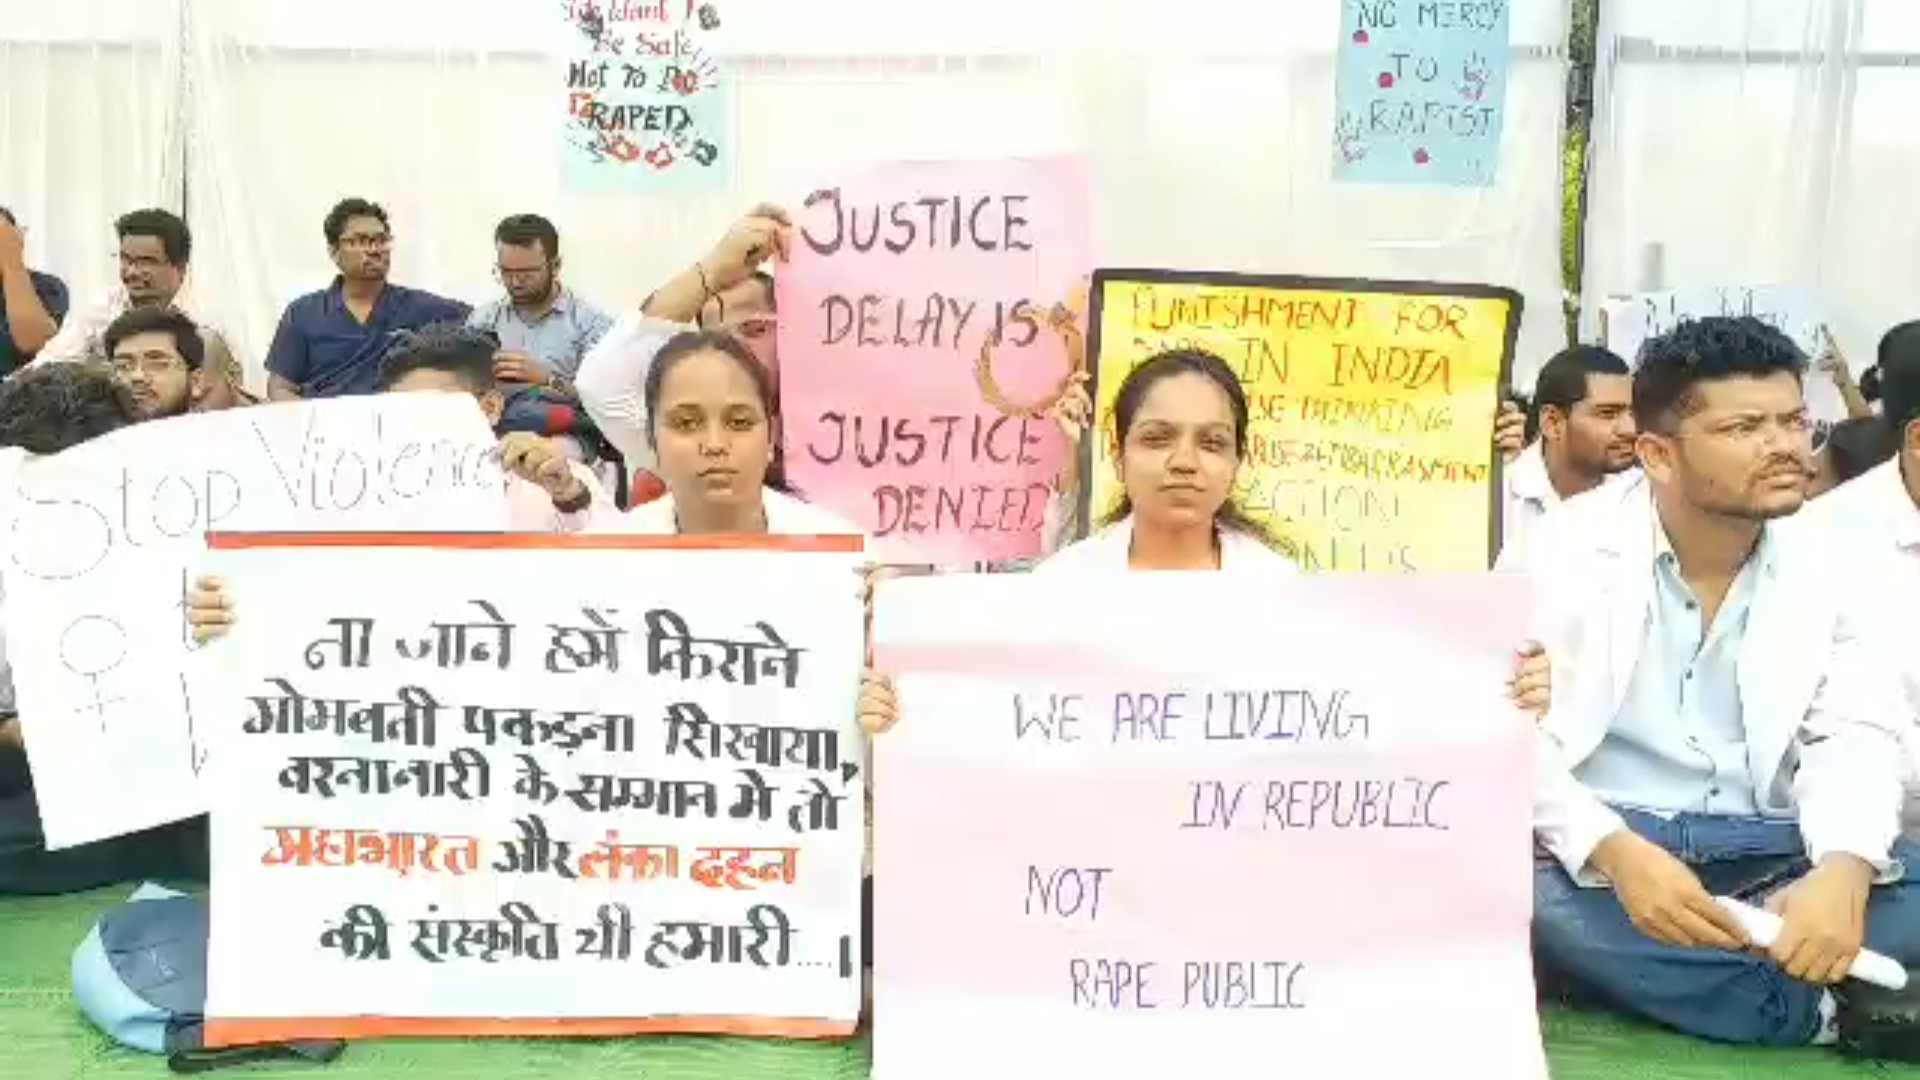 We Want To
Be Safe
Not To Be
RAPED
NO MERCY
TO
RAPIST
JUSTICE
DELAY IS
JUSTICE
DENIED
PUNISHMENT FOR
IN INDIA
THINKING
EMBARRASMENT
ACTION
Stop Violence
ना जाने हमें किसने
मोमबत्ती पकड़ना सिखाया,
वरना नारी के सम्मान मे तो
महाभारत और लंका दहन
की संस्कृति थी हमारी....।
WE ARE LIVING
IN REPUBLIC
NOT
RAPE PUBLIC